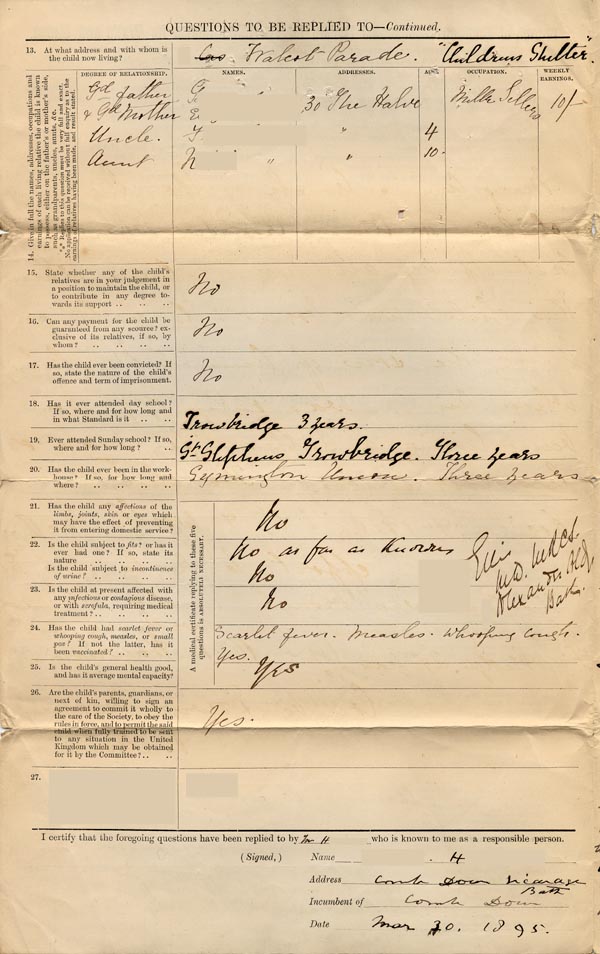 QUESTIONS TO BE REPLIED TO—Continued.
13. At what address and with whom is
the child now living?
Walcot Parade. "Childrens Shelter".
14. Give in full the names, addresses, occupations and
earnings of each living relative the child is known
to possess, either on the father's or mother's side,
such as grandparents, uncles, aunts, &c.
*** Replies to this question must be very full and exact.
No application can be received without full enquiry as to the
earnings of relatives having been made, and result stated.
DEGREE OF RELATIONSHIP. NAMES. ADDRESSES. AGE. OCCUPATION. WEEKLY EARNINGS.
Gd father G. 30 The Halve Milk Sellers 10/-
& Gd Mother E.
Uncle. F. " " 4
Aunt N " " 10
15. State whether any of the child's
relatives are in your judgement in
a position to maintain the child, or
to contribute in any degree to-
wards its support .. .. ..
No
16. Can any payment for the child be
guaranteed from any scource? ex-
clusive of its relatives, if so, by
whom? .. .. .. ..
No
17. Has the child ever been convicted? If
so, state the nature of the child's
offence and term of imprisonment.
No
18. Has it ever attended day school?
If so, where and for how long and
in what Standard is it .. ..
Trowbridge 3 years.
19. Ever attended Sunday school? If so,
where and for how long? ..
St Stephens, Trowbridge. Three years
20. Has the child ever been in the work-
house? If so, for how long and
where? .. .. .. ..
Semington Union. Three years
A medical certificate replying to these five
questions is ABSOLUTELY NECESSARY.
21. Has the child any affections of the
limbs, joints, skin or eyes which
may have the effect of preventing
it from entering domestic service?
No
22. Is the child subject to fits? or has it
ever had one? If so, state its
nature .. .. .. ..
No as far as Known
Is the child subject to incontinence
of urine? .. .. .. ..
No
23. Is the child at present affected with
any infectious or contagious disease,
or with scrofula, requiring medical
treatment? .. .. .. ..
No
M.D. MRCS
Bath.
24. Has the child had scarlet fever or
whooping cough, measles, or small
pox? If not the latter, has it
been vaccinated? .. .. ..
Scarlet fever. Measles. Whooping cough.
Yes.
25. Is the child's general health good,
and has it average mental capacity?
Yes
26. Are the child's parents, guardians, or
next of kin, willing to sign an
agreement to commit it wholly
to the care of the Society, to obey the
rules in force, and to permit the said
child when fully trained to be sent
to any situation in the United
Kingdom which may be obtained
for it by the Committee? .. ..
Yes.
27.
I certify that the foregoing questions have been replied to by Mr H who is known to me as a responsible person.
(Signed,) Name H
Address Comb Down Vicarage
Bath
Incumbent of Comb Down
Date Mar 30. 1895.